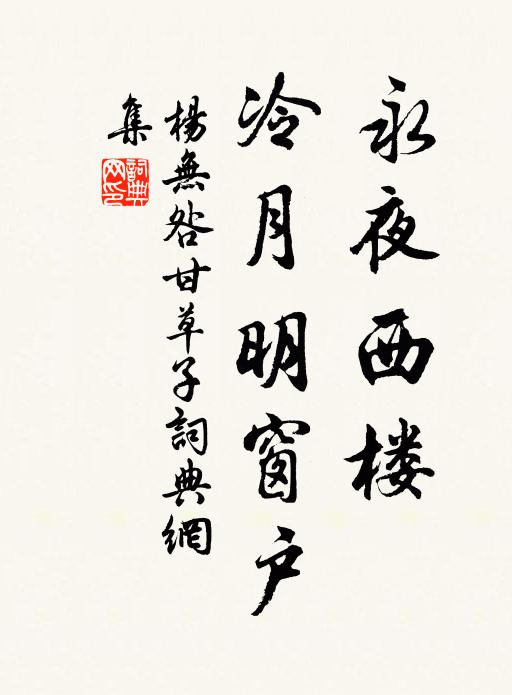 永夜西楼
冷月明窗户
楊無咎甘草子詞典網
集
詞典網印